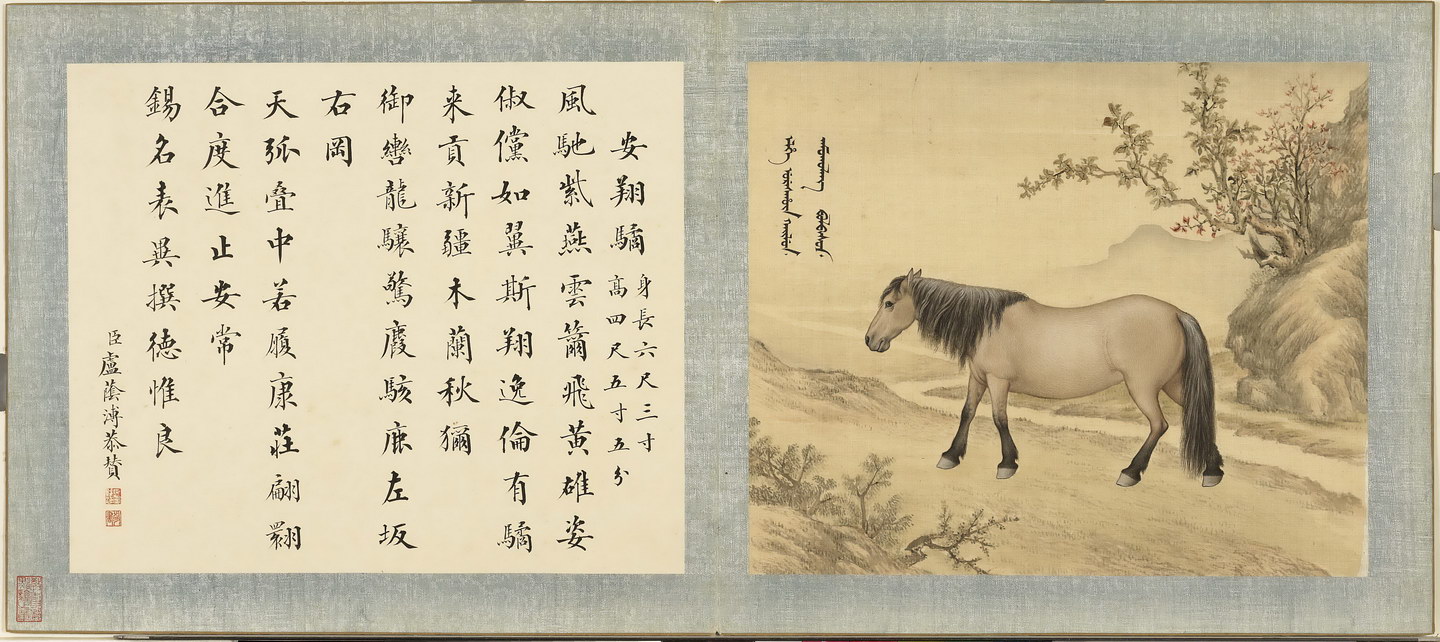 安翔驈 身長六尺三寸
高四尺五寸五分
風馳紫燕雲籋飛黄雄姿
俶儻如翼斯翔逸倫有驈
来貢新疆木蘭秋獮
御轡龍驤驚麚駭鹿左坂
右岡
天弧叠中若履康莊翩翾
合度進止安常
錫名表異撰德惟良
臣盧蔭溥恭贊